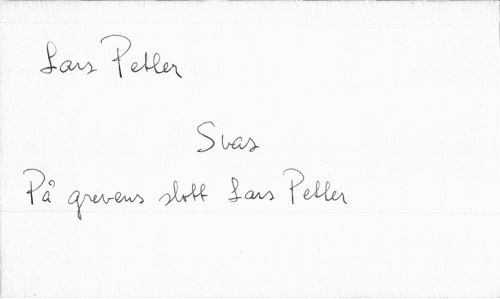 Lars Petter
Svar
På grevens slott Lars Petter